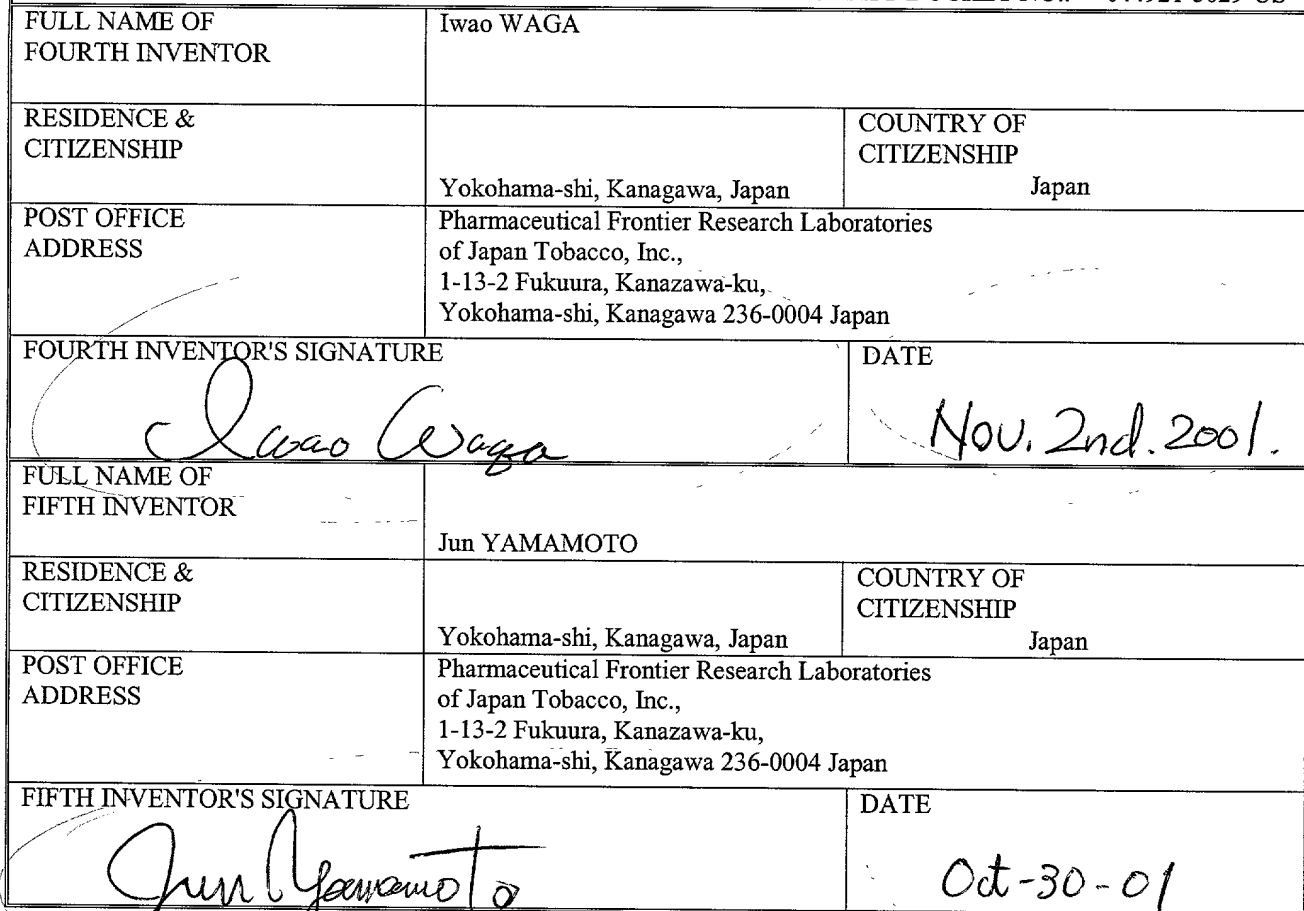 FULL NAME OF
FOURTH INVENTOR
Iwao WAGA
RESIDENCE &
CITIZENSHIP
Yokohama-shi, Kanagawa, Japan
COUNTRY OF
CITIZENSHIP
Japan
POST OFFICE
ADDRESS
Pharmaceutical Frontier Research Laboratories
of Japan Tobacco, Inc.,
1-13-2 Fukuura, Kanazawa-ku,
Yokohama-shi, Kanagawa 236-0004 Japan
FOURTH INVENTOR'S SIGNATURE
Iwao Waga
DATE
Nov. 2nd. 2001.
FULL NAME OF
FIFTH INVENTOR
Jun YAMAMOTO
RESIDENCE &
CITIZENSHIP
Yokohama-shi, Kanagawa, Japan
COUNTRY OF
CITIZENSHIP
Japan
POST OFFICE
ADDRESS
Pharmaceutical Frontier Research Laboratories
of Japan Tobacco, Inc.,
1-13-2 Fukuura, Kanazawa-ku,
Yokohama-shi, Kanagawa 236-0004 Japan
FIFTH INVENTOR'S SIGNATURE
Jun Yamamoto
DATE
Oct-30-01